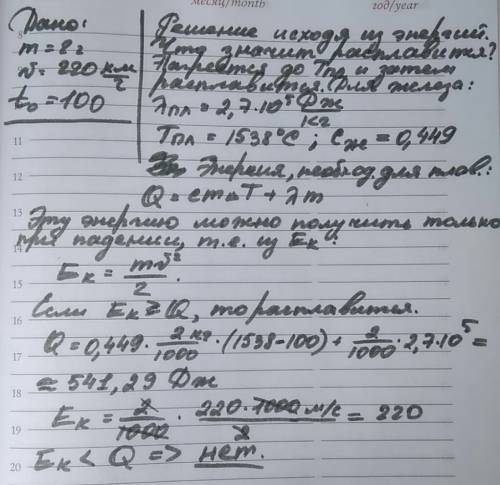 месяц/month
год/year
Дано:
m = 2 г
v = 220 км/г
t₀ = 100
Решение исходя из энергий.
Что значит расплавится?
Нагреется до Tпл и затем
расплавится. Для железа:
λпл = 2,7·10⁵ Дж/кг
Tпл = 1538°C ; Cж = 0,449
Энергия, необход. для плав.:
Q = cm▵T + λm
Эту энергию можно получить только
при падении, т.е. из Eк:
Eк = mv²/2.
Если Eк ≥ Q, то расплавится.
Q = 0,449 · 2 кг/1000 · (1538-100) + 2/1000 · 2,7·10⁵ =
≃ 541,29 Дж
Eк = 2/1000 · 220·1000 м/с/2 = 220
Eк < Q => нет.
8
9
10
11
12
13
14
15
16
17
18
19
20